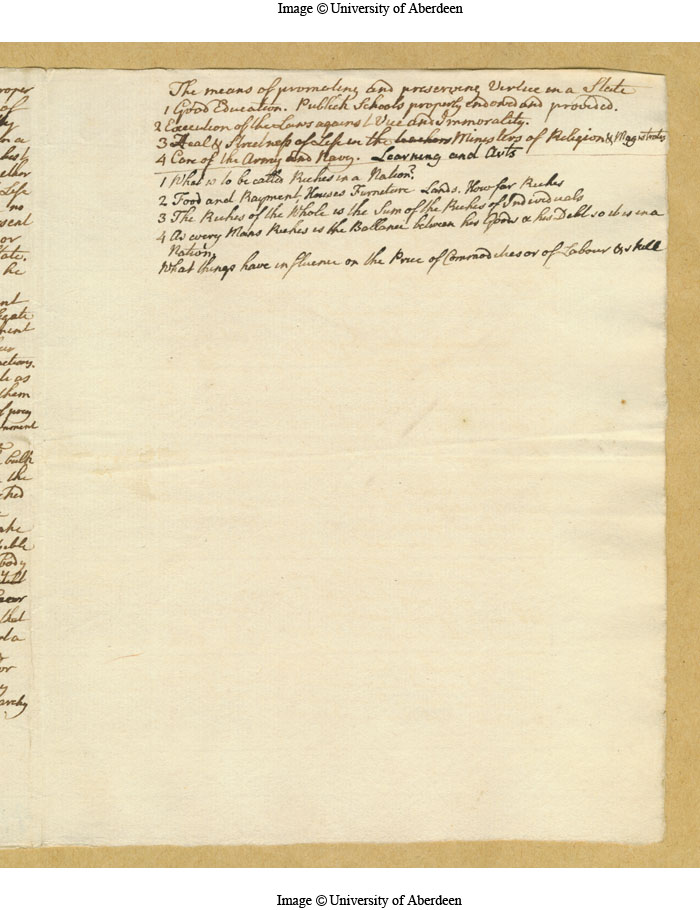 Image © University of Aberdeen
roper
of
on a
ether
Life
no
sent
or
tate.
he
ent
egate
ment
ctions.
as
them
of
ernment
bulk
the
ched
ake
ible
body
that
or
archy
The means of promoting and preserving Virtue in a State
1 Good Education. Publick Schools properly endowed and provided.
2 Execution of the Laws against Vice and Immorality.
3 Zeal & Strictness of Life in the teachers Ministers of Religion & Magistrates
4 Care of the Army and Navy. Learning and Arts
1 What is to be called Riches in a Nation.
2 Food and Rayment, Houses Furneture Lands. How far Riches
3 The Riches of the Whole is the Sum of the Riches of Individuals
4 As every Mans Riches is the Ballance between his Goods & his Debts so it is in a
Nation.
What things have influence on the Price of Commodities or of Labour & skill
Image © University of Aberdeen